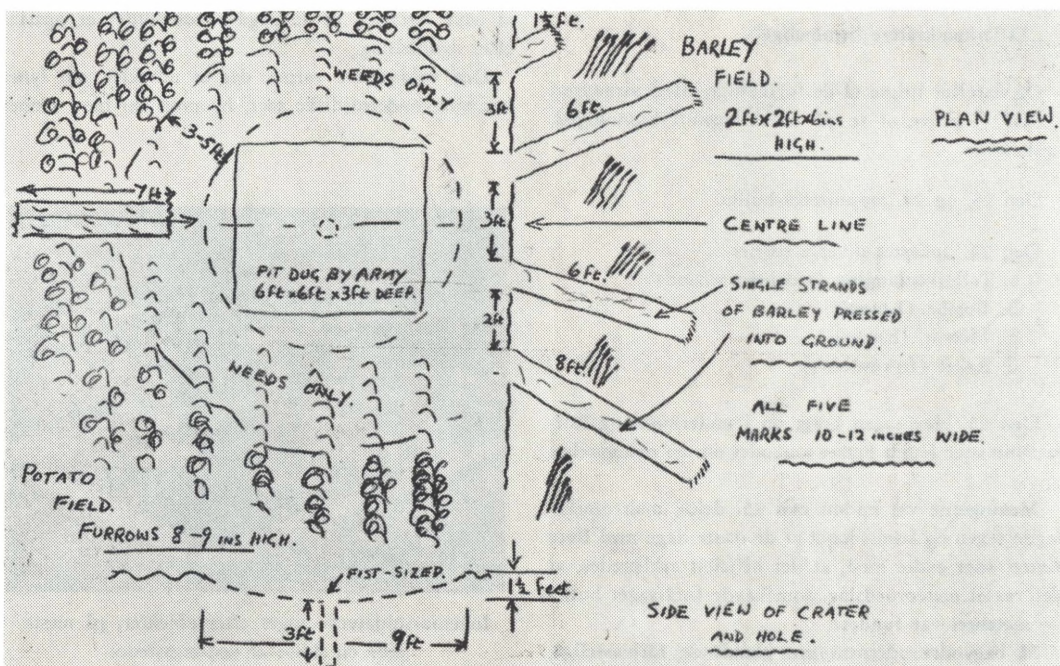 1½ft.
WEEDS ONLY
BARLEY
FIELD.
2ft x 2ft x 6ins
HIGH.
PLAN VIEW.
3ft
6ft.
3-5ft
7ft
3ft
CENTRE LINE
PIT DUG BY ARMY
6ft x 6ft x 3ft DEEP.
6ft.
SINGLE STRANDS
OF BARLEY PRESSED
INTO GROUND.
2ft
8ft.
WEEDS ONLY.
ALL FIVE
MARKS 10-12 INCHES WIDE.
POTATO
FIELD.
FURROWS 8-9 INS HIGH.
FIST-SIZED.
1½ Feet.
3ft
9ft
SIDE VIEW OF CRATER
AND HOLE.